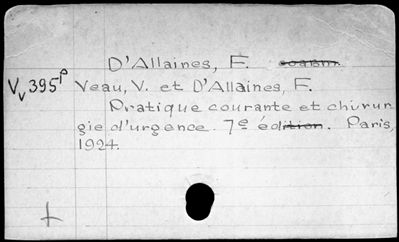 D'Allaines, F.
Vv 395P Veau, V. et D'Allaines, F.
Pratique courante et chirur
gie d'urgence. 7e édition. Paris,
1924.